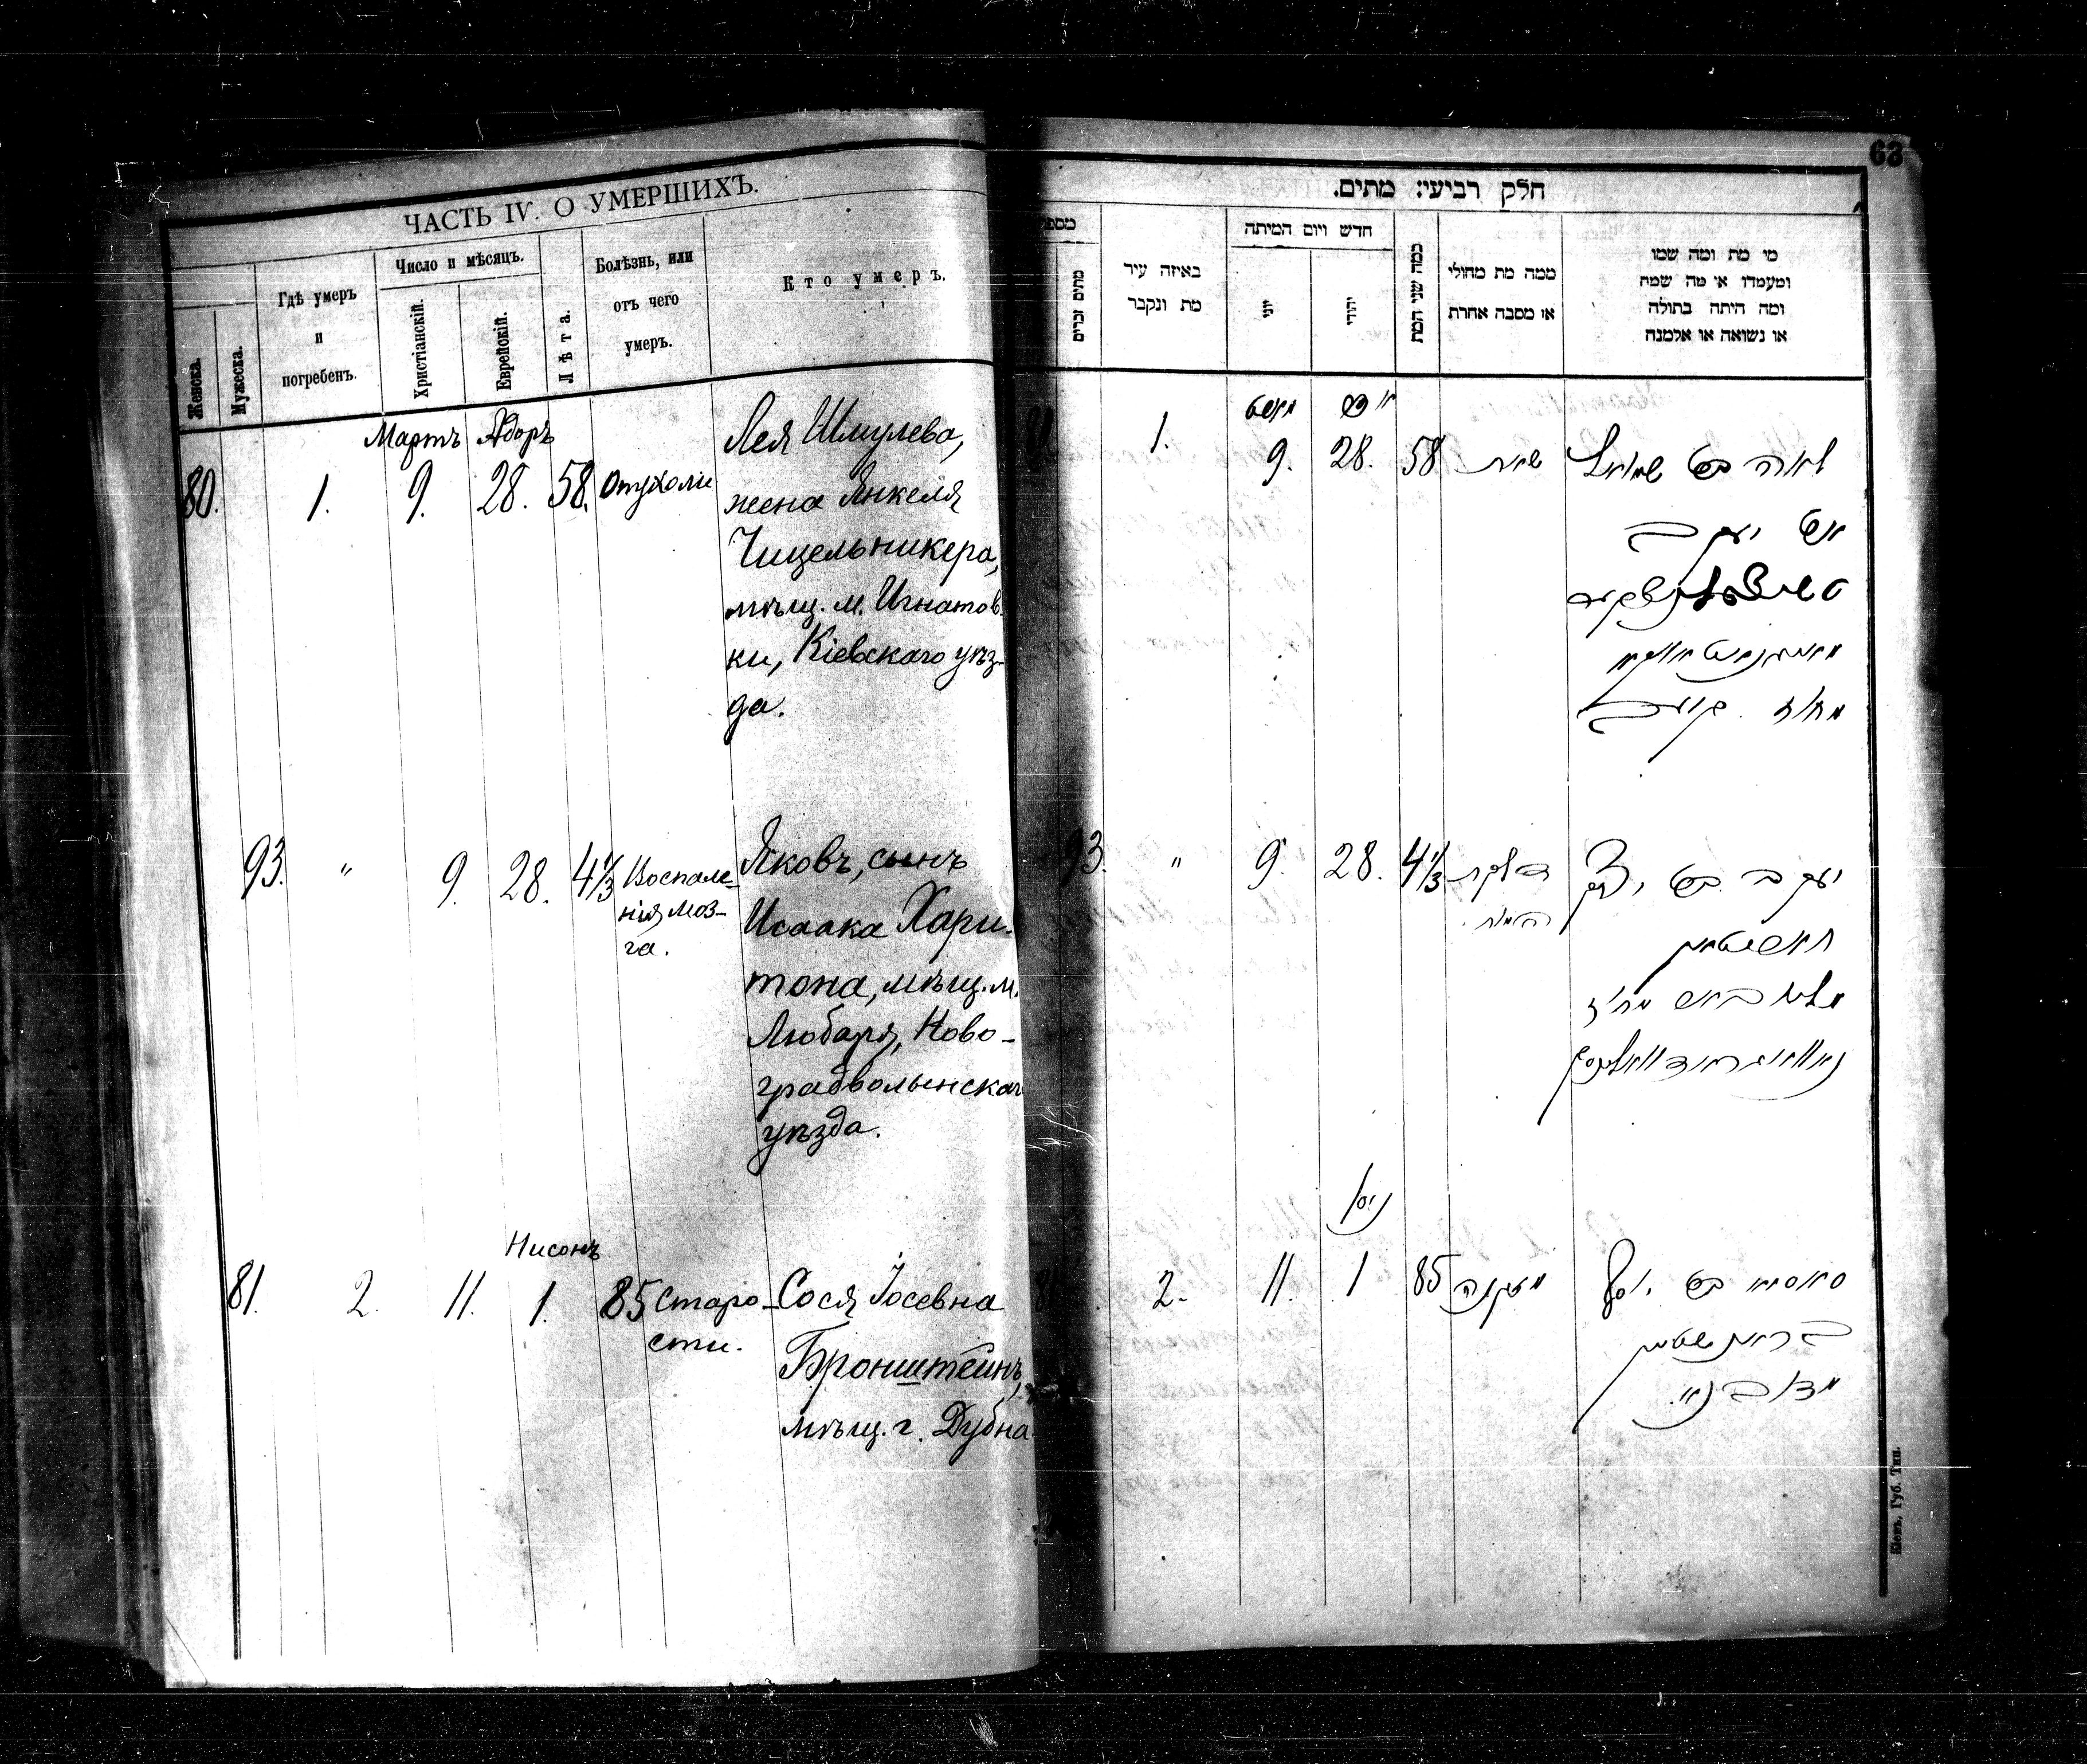 63
ЧАСТЬ IV. О УМЕРШИХЪ.
Женска.
Мужеска.
Гдѣ умеръ
и
погребенъ.
Число и мѣсяцъ.
Христіанскій.
Еврейскій.
Лѣта.
Болѣзнь, или
отъ чего
умеръ.
Кто умеръ.
Мартъ Адоръ
80. 1. 9. 28. 58. Опухоли
Лея Шмулева,
жена Янкеля
Чицельникера,
мѣщ. м. Игнатов-
ки, Кіевскаго уѣз-
да.
93. " 9. 28. 4⅓ Воспале-
нія моз-
га.
Яковъ, сынъ
Исаака Хари-
тона, мѣщ. м.
Любаря, Ново-
градволынскаго
уѣзда.
Нисонъ
81. 2. 11. 1. 85 Старо-
сти.
Сося Іосевна
Бронштейнъ,
мѣщ. г. Дубна
חלק רביעי: מתים.
מספר
מתים זכרים
באיזה עיר
מת ונקבר
חדש ויום המיתה
יוני
יהודי
כמה שני המת
ממה מת מחולי
או מסבה אחרת
מי מת ומה שמו
ומעמדו או מה שמה
ומה היתה בתולה
או נשואה או אלמנה
1. 9. 28. 58
לאה בת שמואל
אשת יעקב
93. " 9. 28. 4⅓
ניסן
2. 11. 1 85 מזקנה
בראנשטיין
מדובנא
Кіевъ. Губ. Тип.